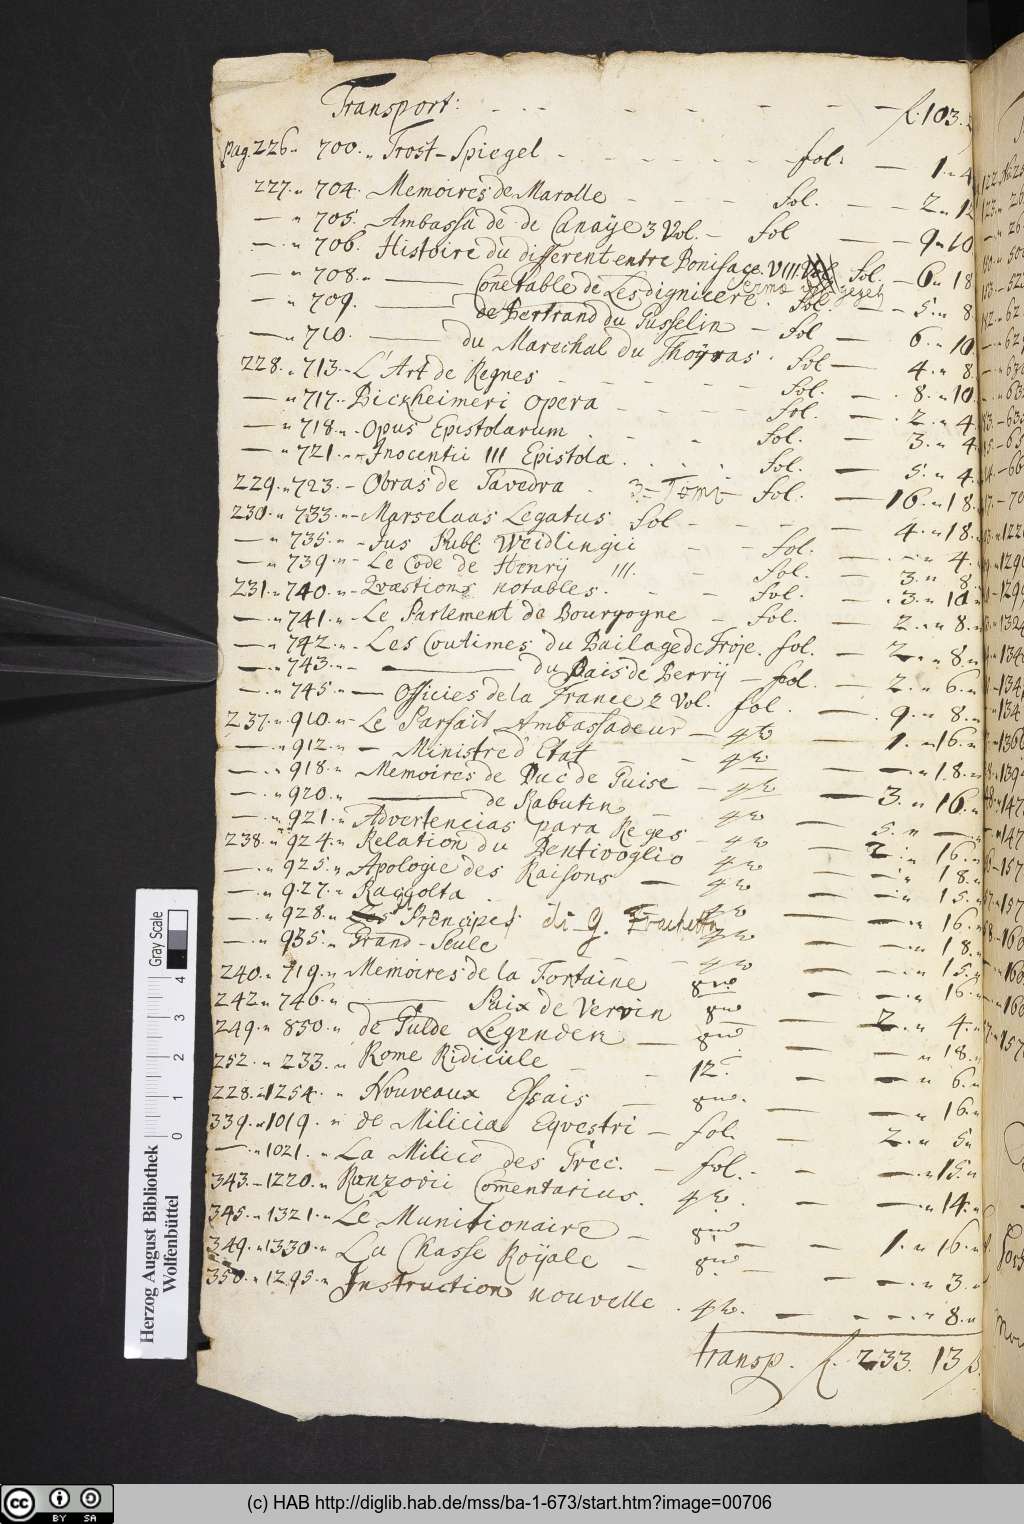 Transport: — f. 103.
Pag. 226. „ 700. „ Trost-Spiegel — fol: — 1. „ 4
227. „ 704. Memoires de Marolle — fol. — 2 „ 12
— „ 705. Ambassade de Canaÿe 3 Vol. — fol — 9 „ 10
— „ 706. Histoire du different entre Boniface VIII fol. — 6 „ 18
— „ 708. „ — Conetable de Lesdignicere. fol. — 5 „ 8
— „ 709. — de Bertrand du Gusselin — fol — 6. „ 10
— „ 710. — du Marechal du Thoÿras. fol — 4. „ 8
228. „ 713. L'Art de Regnes — fol. — 8. „ 10
— „ 717. Bickheimeri opera — fol. — 2. „ 4
— „ 718. „ Opus Epistolarum — fol. — 3. „ 4
— „ 721. „ Inocentii III Epistola. fol. — 5 „ 4
229. „ 723. — Obras de Tavedra. 3 — Tomi — fol. — 16. „ 18.
230. „ 733. „ Marselaas Legatus fol — 4. „ 18.
— „ 735. „ Jus Publ: Weidlingii — fol. — „ 4.
— „ 739. „ Le Code de Henrÿ III. fol. — 3. „ 8
231. „ 740. „ Qvæstions notables. — fol. — 3. „ 10
— „ 741. „ Le Parlement de Bourgogne — fol. — 2. „ 8.
— „ 742. „ Les Coutimes du Bailage de Troje. fol. — 2. „ 8.
— „ 743. „ — du Pais de Berrÿ — fol. — 2. „ 6.
— „ 745. „ — Officies de la France 2 Vol. fol. — 9. „ 8.
237. „ 910. „ Le Parfait Ambassadeur — 4to — 1. „ 16.
— „ 912. „ — Ministre d'Etat — 4to — „ 18.
— „ 918. „ Memoires de Duc de Guise — 4to — 3. „ 16.
— „ 920. „ — de Rabutin — 4to — 5. „ —
— „ 921. „ Advertencias para Reges — 4to — 2. „ 16.
238. „ 924. „ Relation du Bentivoglio 4to — „ 18.
— „ 925. „ Apologie des Raisons — 4to — „ 15.
— „ 927. „ Raggolta — 4to — „ 16.
— „ 928. „ Principes di G. Frachetta 4to — „ 18.
— „ 935. „ Grand-Seule — 4to — „ 15.
240. „ 719. „ Memoires de la Fontaine 8vo — „ 16.
242 „ 746. „ — Paix de Vervin 8vo — 2. „ 4.
249. „ 850. „ de Gulde Legenden — 8vo — „ 18.
252. „ 233. „ Rome Ridicule — 12. — „ 6.
228. „ 1254. „ Nouveaux Essais — 8vo. — „ 16.
339. „ 1019. „ de Milicia Eqvestri — fol. — 2. „ 5
— „ 1021. „ La Milice des Grec. — fol. — „ 15.
343. — 1220. „ Ranzovii Comentarius. 4to. — „ 14.
345. „ 1321. „ Le Munitionaire — 8vo — 1. „ 16.
349. „ 1330. „ La Chasse Roÿale — 8vo — „ 3.
350. „ 1295. „ Instruction nouvelle. 4to. — „ 8.
transp. f. 233. 13
Herzog August Bibliothek
Wolfenbüttel
Gray Scale
0 1 2 3 4
(c) HAB http://diglib.hab.de/mss/ba-1-673/start.htm?image=00706
cc BY SA